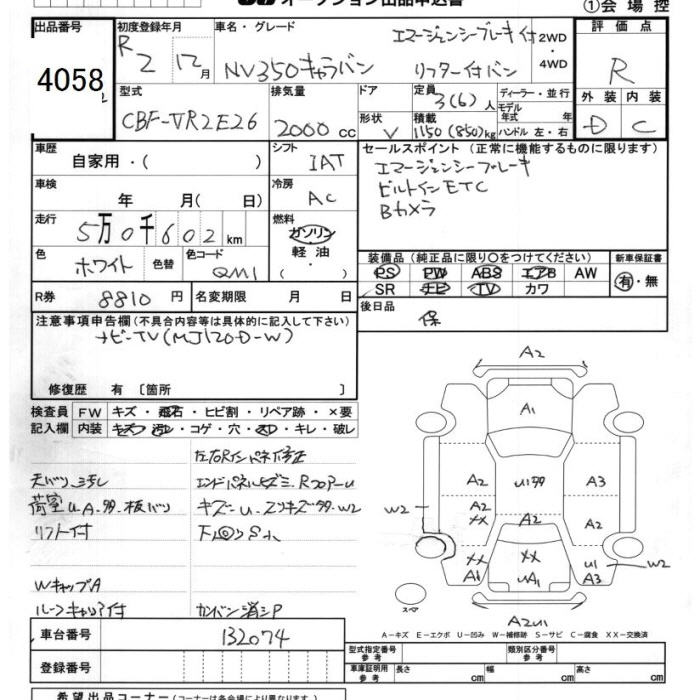 オークション出品申込書
①会場控
出品番号
4058
初度登録年月
R2 12月
車名・グレード
NV350キャラバン
エマージェンシーブレーキ付
リフター付バン
2WD
・
4WD
評価点
R
外装 内装
D C
型式
CBF-VR2E26
排気量
2000 cc
ドア
形状
V
定員
3(6)人
積載
1150(850)kg
ディーラー・並行
モデル
年式 年
ハンドル 左・右
車歴
自家用・( )
シフト
IAT
セールスポイント(正常に機能するものに限ります)
エマージェンシーブレーキ
ビルトインETC
Bカメラ
車検
年 月( 日)
冷房
AC
走行
5万0千602 km
燃料
ガソリン
軽油
( ・ )
色
ホワイト
色替
色コード
QM1
装備品(純正品に限り○をつけてください)
PS PW ABS エアB AW
SR ナビ TV カワ
新車保証書
有・無
R券
8810円
名変期限 月 日
後日品
保
注意事項申告欄(不具合内容等は具体的に記入して下さい)
ナビーTV(MJ120D-W)
修復歴 有〔箇所 〕
検査員
記入欄
FW キズ・飛石・ヒビ割・リペア跡・×要
内装 キズ・汚レ・コゲ・穴・スレ・キレ・破レ
左右Rインパネ修正
天バリ汚レ
エンドパネルヒズミ.RフロアーU
荷室U.A.サ.板バリ
リフト付
下回りS小
WキャップA
ルーフキャリア付
カンバン消シP
A2
A1
A2
UIサ
A3
A2
XX
A2
A2
W2
XX
A1
XX
UA1
U1
A3
W2
スペア
A2U1
A－キズ E－エクボ U－凹み W－補修跡 S－サビ C－腐食 XX－交換済
車台番号
132074
登録番号
型式指定番号
参考
類別区分番号
参考
車庫証明用
参考
長さ cm
幅 cm
高さ cm
希望出品コーナー(コーナーは各会場により異なります)